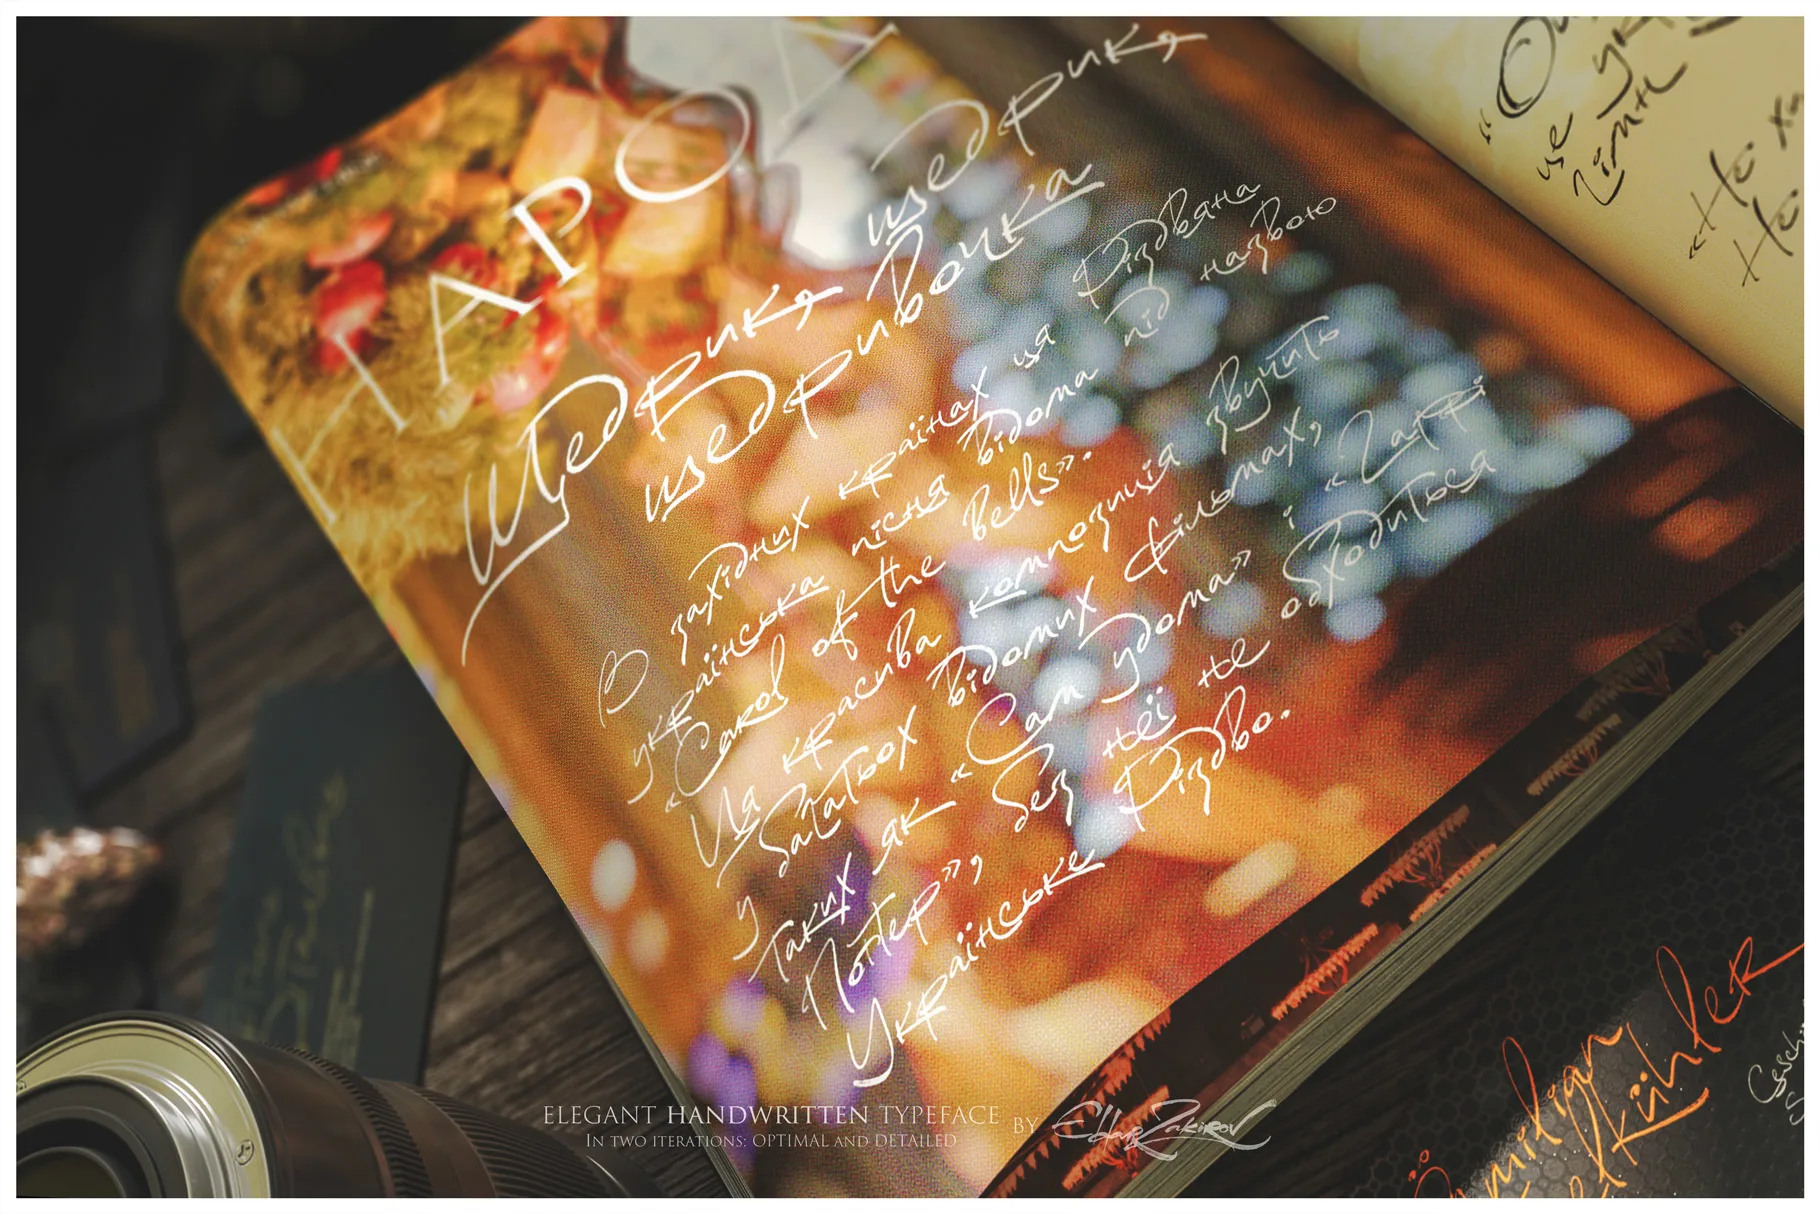 НАРОД
щедрик,
Щедрик,
щедрівочка
В західних країнах ця Різдвяна
українська пісня відома під назвою
«Carol of the Bells».
Ця красива композиція звучить
у багатьох відомих фільмах,
таких як «Сам удома» і «Гаррі
Поттер», без неї не обходиться
Українське Різдво.
це
«Не
Не
ELEGANT HANDWRITTEN TYPEFACE BY Eldar Zakirov
IN TWO ITERATIONS: OPTIMAL AND DETAILED